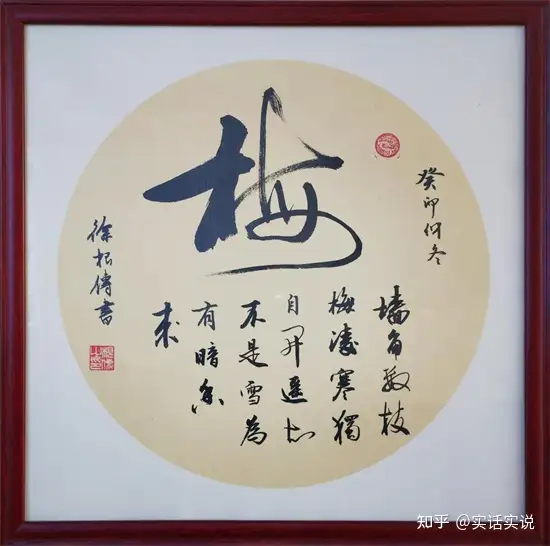 梅
癸卯仲冬
墙角数枝
梅凌寒獨
自開遥知
不是雪為
有暗香
来
徐松傳書
知乎 @实话实说